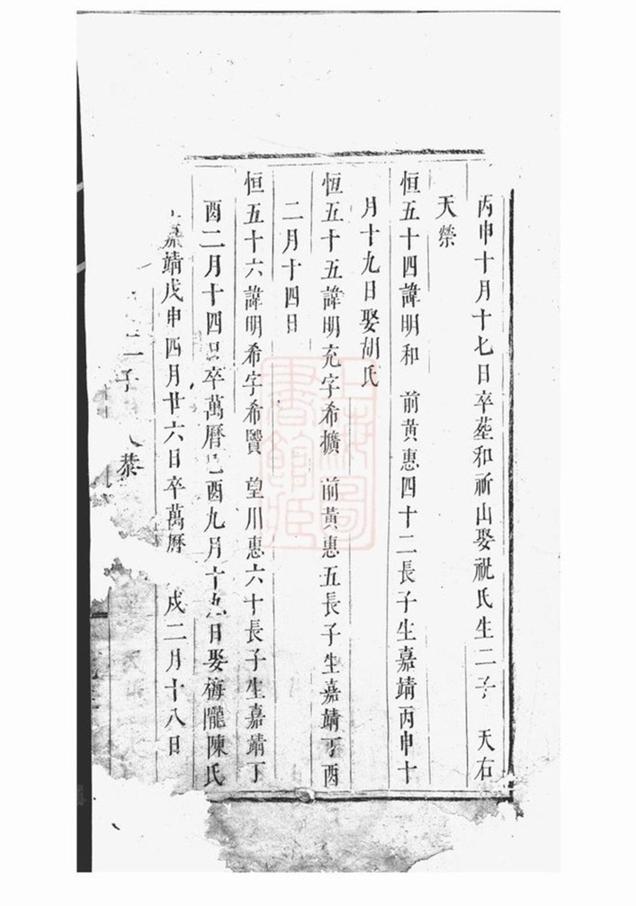 丙申十月十七日卒塟和祈山娶祝氏生二子　天右
天榮
恒五十四諱明和　前黃惠四十二長子生嘉靖丙申十
月十九日娶胡氏
恒五十五諱明充字希擴　前黃惠五長子生嘉靖丁酉
二月十四日
恒五十六諱明希字希贒　望川惠六十長子生嘉靖丁
酉二月十四日卒萬曆己酉九月十九日娶梅隴陳氏
嘉靖戊申四月廿六日卒萬曆　戌二月十八日
二子　恭
上海圖書館藏